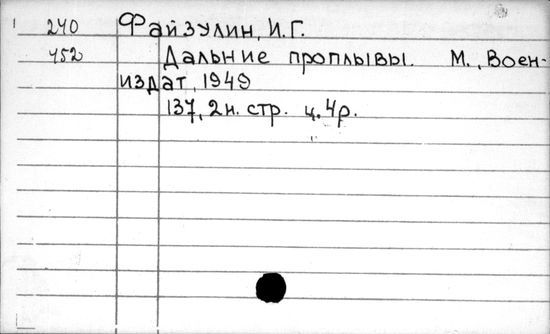 240 Файзулин, И.Г.
452 Дальние проплывы. М., Воен-
издат, 1949
137, 2 н. стр. ц. 4 р.